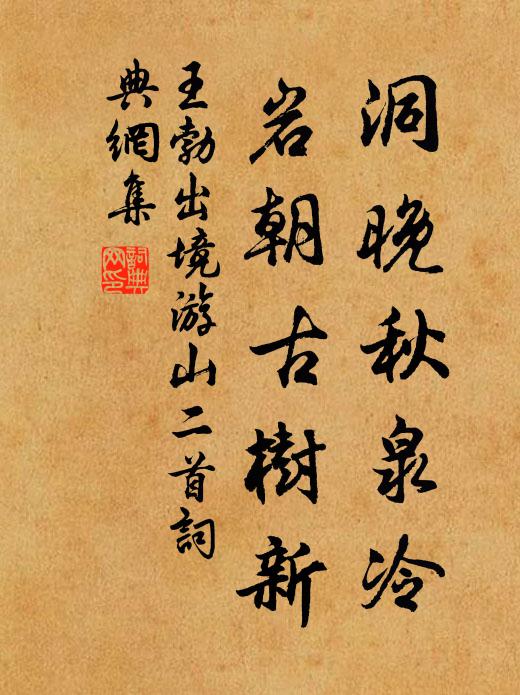 洞晚秋泉冷
岩朝古樹新
王勃出境游山二首詞
典網集
詞典
网印